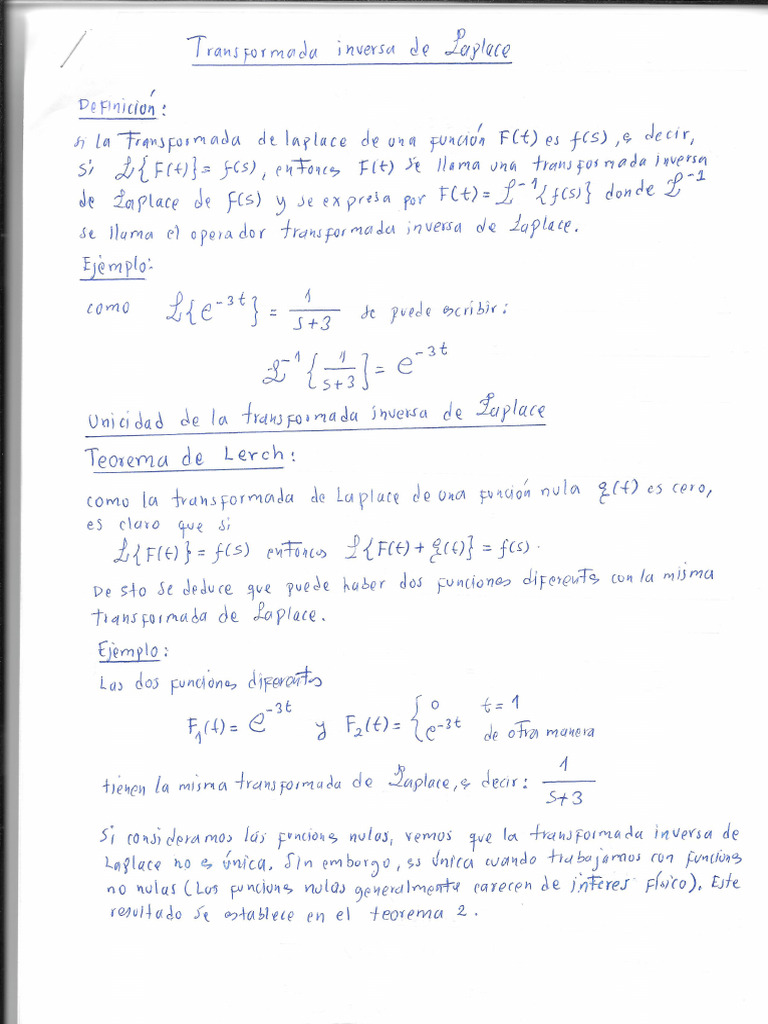 Transformada inversa de Laplace
Definición:
si la Transformada de laplace de una función F(t) es f(s), es decir,
si ℒ{F(t)} = f(s), entonces F(t) se llama una transformada inversa
de Laplace de f(s) y se expresa por F(t) = ℒ⁻¹{f(s)} donde ℒ⁻¹
se llama el operador transformada inversa de Laplace.
Ejemplo:
como ℒ{e⁻³ᵗ} = 1/(s+3) se puede escribir:
ℒ⁻¹{1/(s+3)} = e⁻³ᵗ
Unicidad de la transformada inversa de Laplace
Teorema de Lerch:
como la transformada de Laplace de una función nula ξ(t) es cero,
es claro que si
ℒ{F(t)} = f(s) entonces ℒ{F(t) + ξ(t)} = f(s).
De sto se deduce que puede haber dos funciones diferentes con la misma
transformada de Laplace.
Ejemplo:
Las dos funciones diferentes
F₁(t) = e⁻³ᵗ y F₂(t) = { 0 t = 1
e⁻³ᵗ de otra manera
tienen la misma transformada de Laplace, es decir: 1/(s+3)
Si consideramos las funciones nulas, vemos que la transformada inversa de
Laplace no es única. Sin embargo, es única cuando trabajamos con funciones
no nulas (Las funciones nulas generalmente carecen de interes físico). Este
resultado se establece en el teorema 2.